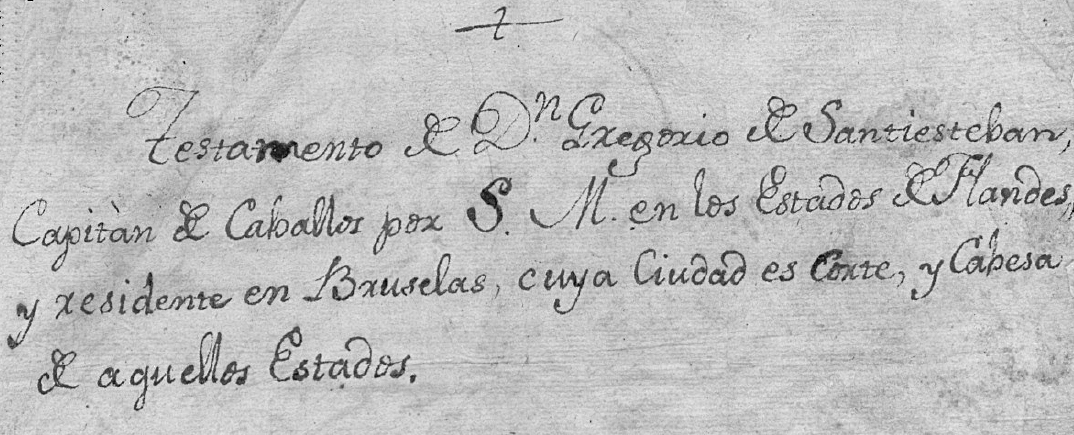 Testamento de D.n Gregorio de Santiesteban,
Capitàn de Caballos por S. M. en los Estados de Flandes,
y residente en Bruselas, cuya Ciudad es Corte, y Cabesa
de aquellos Estados.